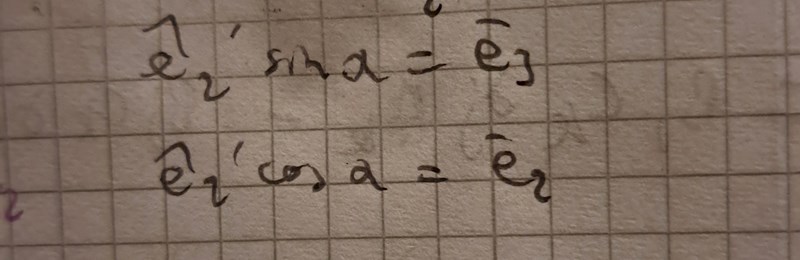 e⃗₂' sin α = e̅₃
e⃗₂' cos α = e̅₂
2